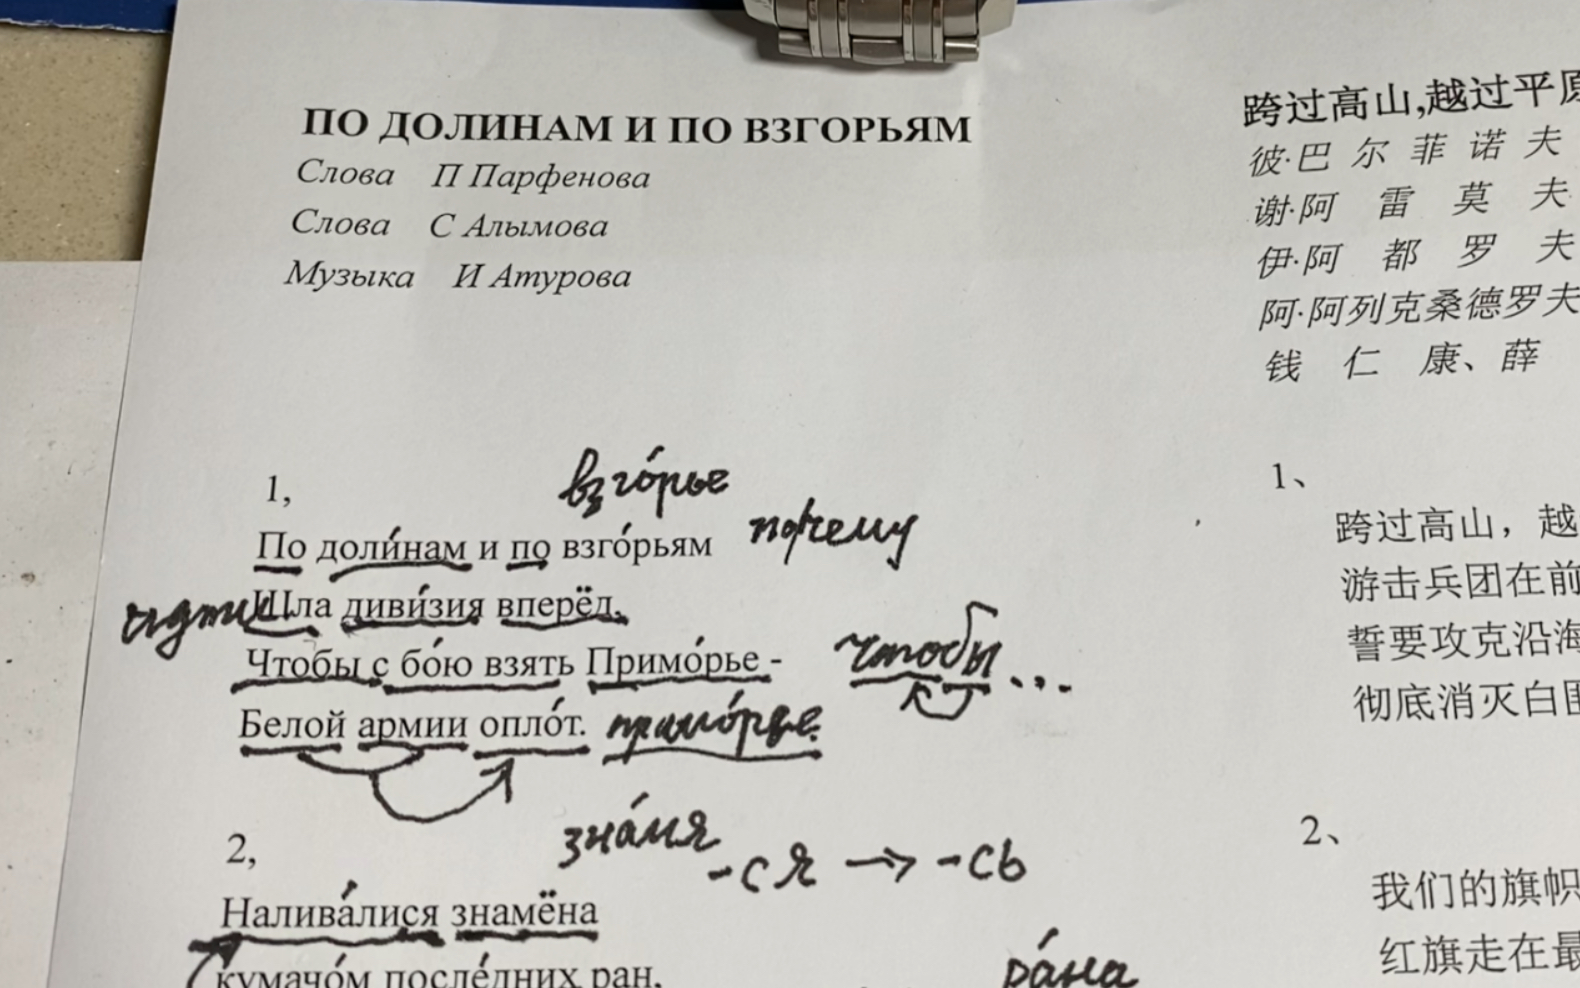 ПО ДОЛИНАМ И ПО ВЗГОРЬЯМ
Слова П Парфенова
Слова С Алымова
Музыка И Атурова
1,
взго́рье
По доли́нам и по взго́рьям почему
идти Шла диви́зия вперёд,
Чтобы с бо́ю взять Примо́рье - чтобы ...
Белой армии опло́т. примо́рье.
2,
зна́мя
-ся → -сь
Налива́лися знамёна
кумачо́м после́дних ран,
ра́на
跨过高山,越过平原
彼·巴尔菲诺夫
谢·阿雷莫夫
伊·阿都罗夫
阿·阿列克桑德罗夫
钱仁康、薛
1、
跨过高山，越
游击兵团在前
誓要攻克沿海
彻底消灭白匪
2、
我们的旗帜
红旗走在最